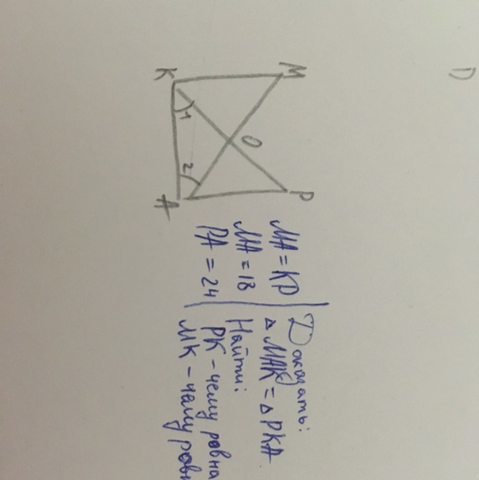 M P
O
1 2
K A
MA = KP
MA = 18
PA = 24
Доказать:
△MAK = △PKA.
Найти:
PK - чему равна
MK - чему равн